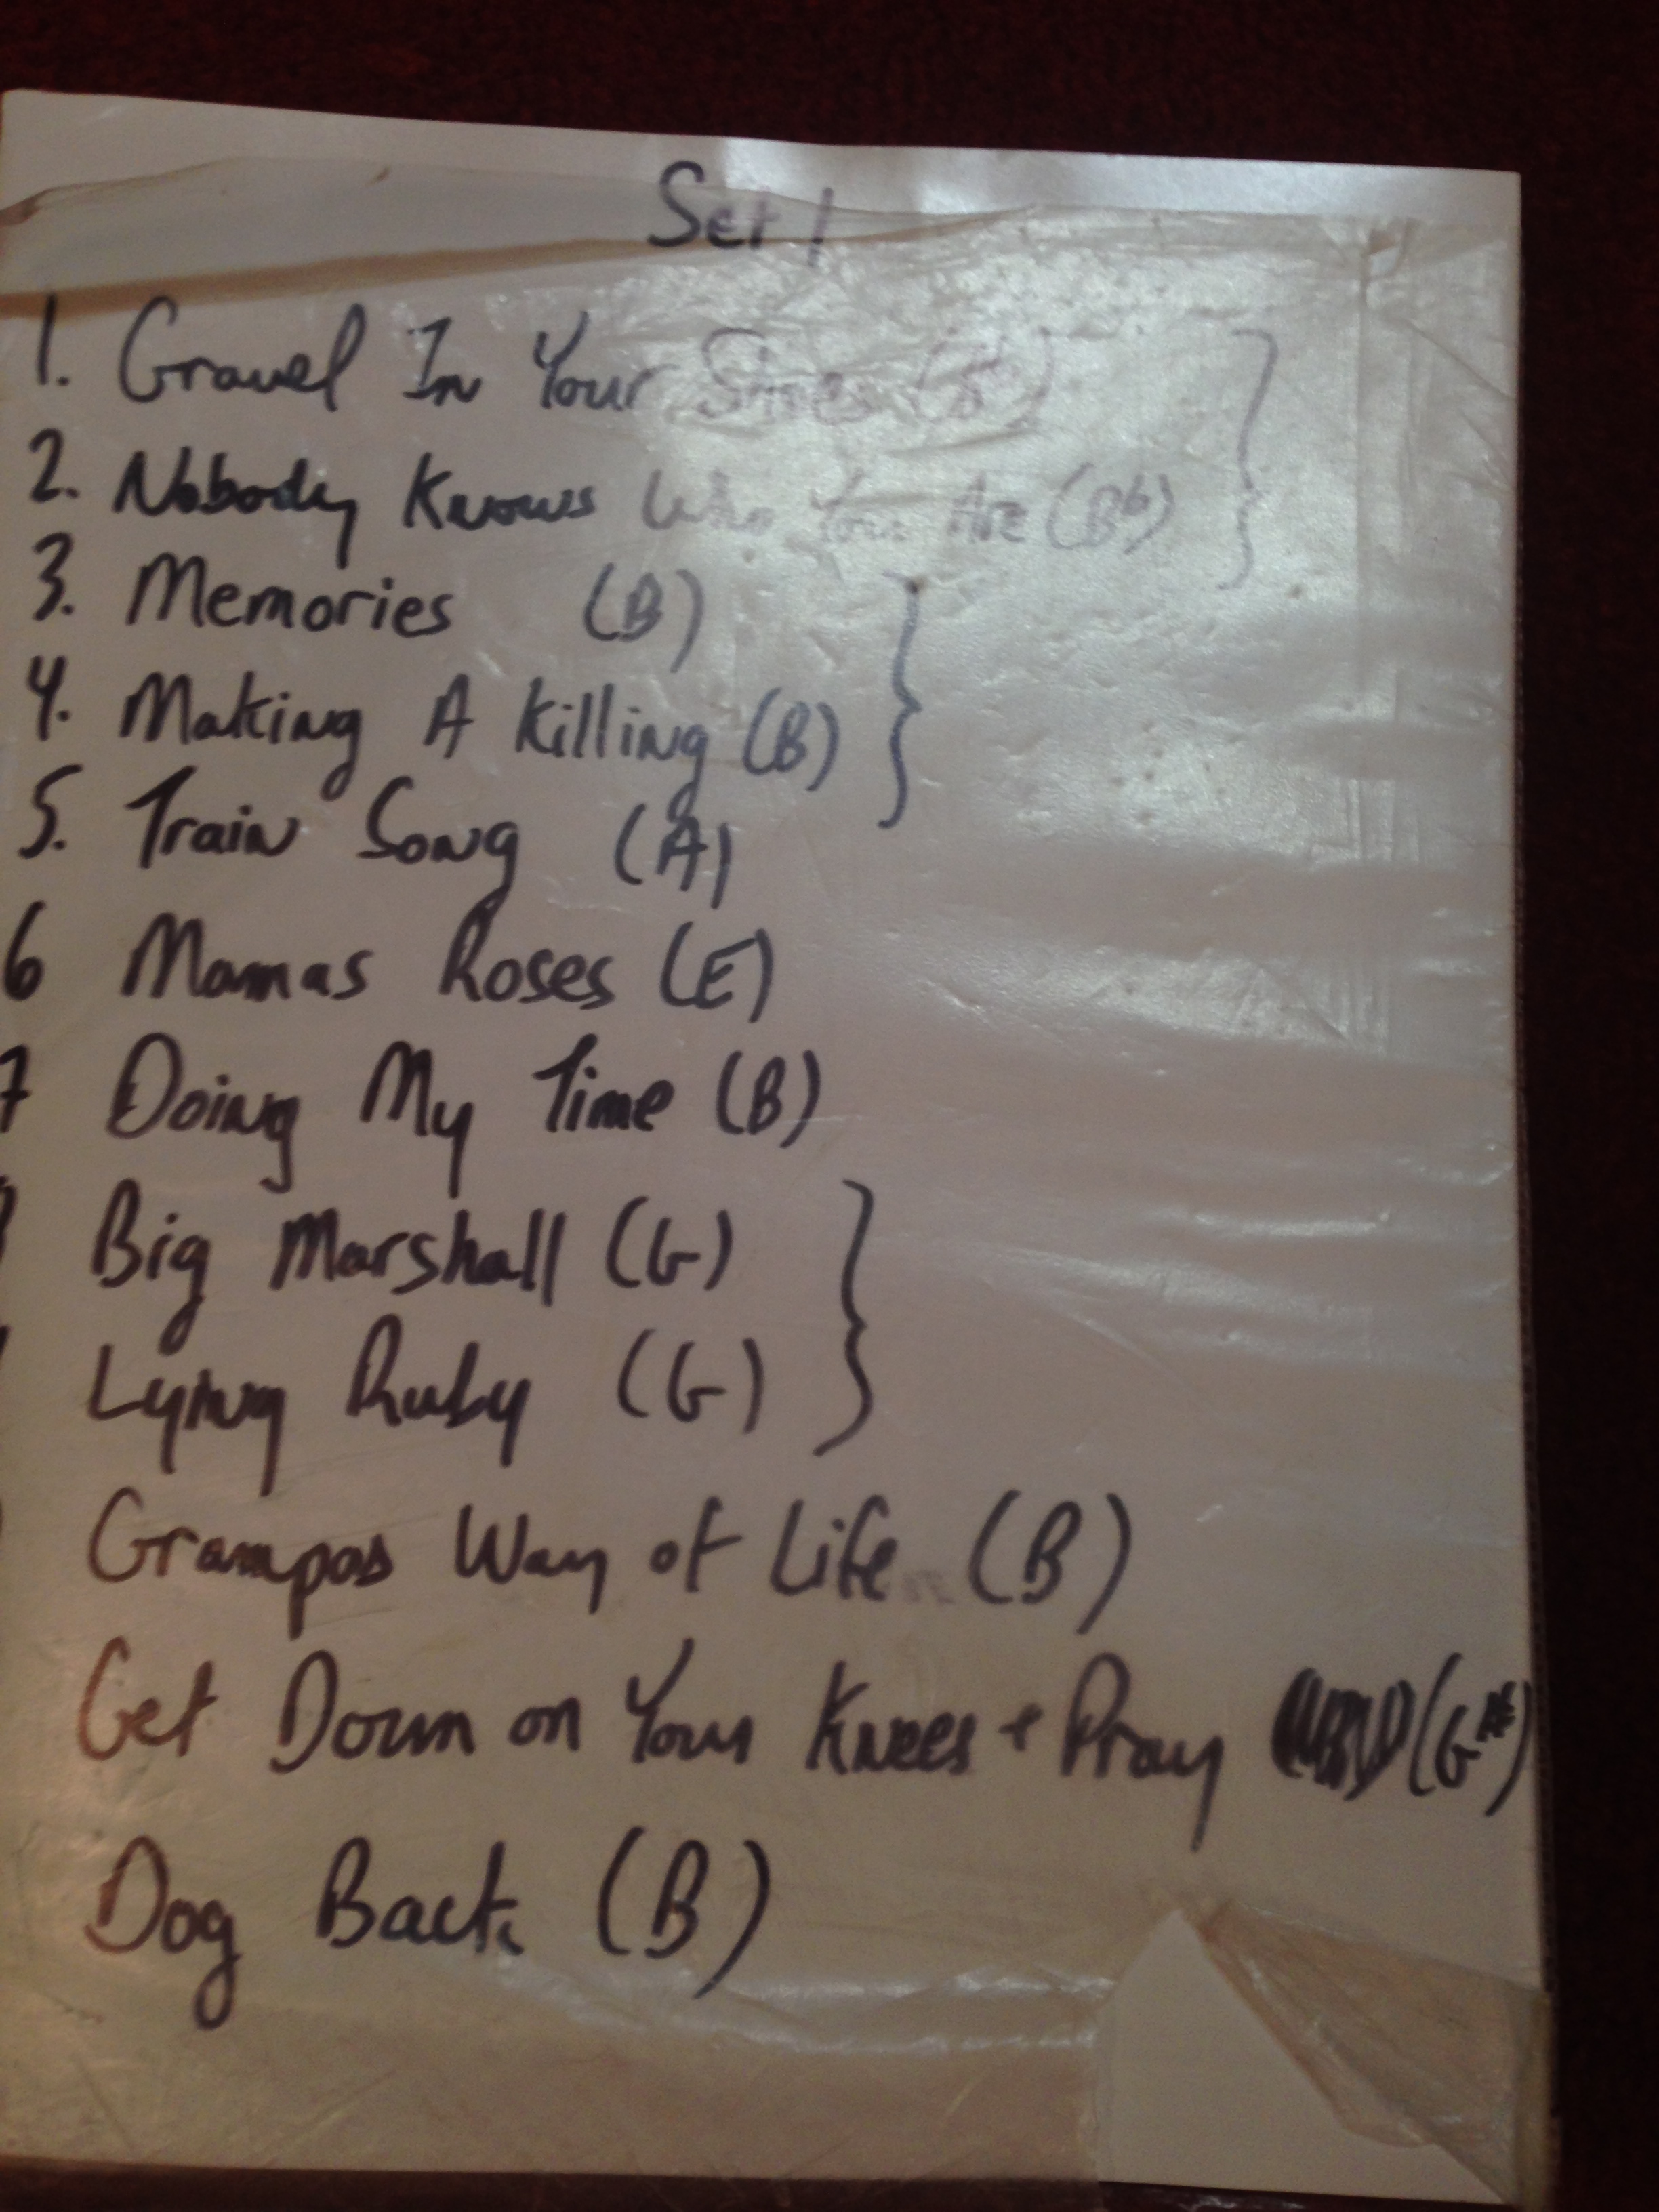 Set 1
1. Gravel In Your Shoes
2. Nobody Knows Who You Are (Bb)
3. Memories (B)
4. Making A Killing (B)
5. Train Song (A)
6 Mamas Roses (E)
7 Doing My Time (B)
Big Marshall (G)
Lying Ruby (G)
Grampas Way of Life (B)
Get Down on Your Knees + Pray (G#)
Dog Back (B)